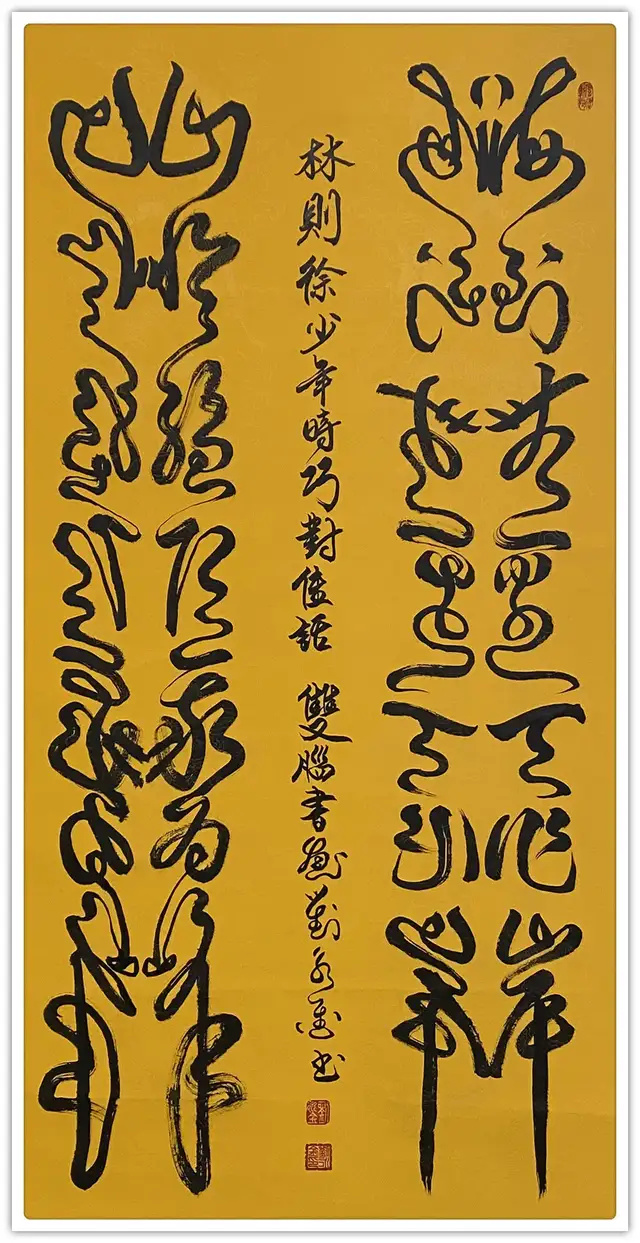 海到無邊天作岸
林則徐少年時巧對佳話 雙腦書 對 書
山登絕頂我為峰